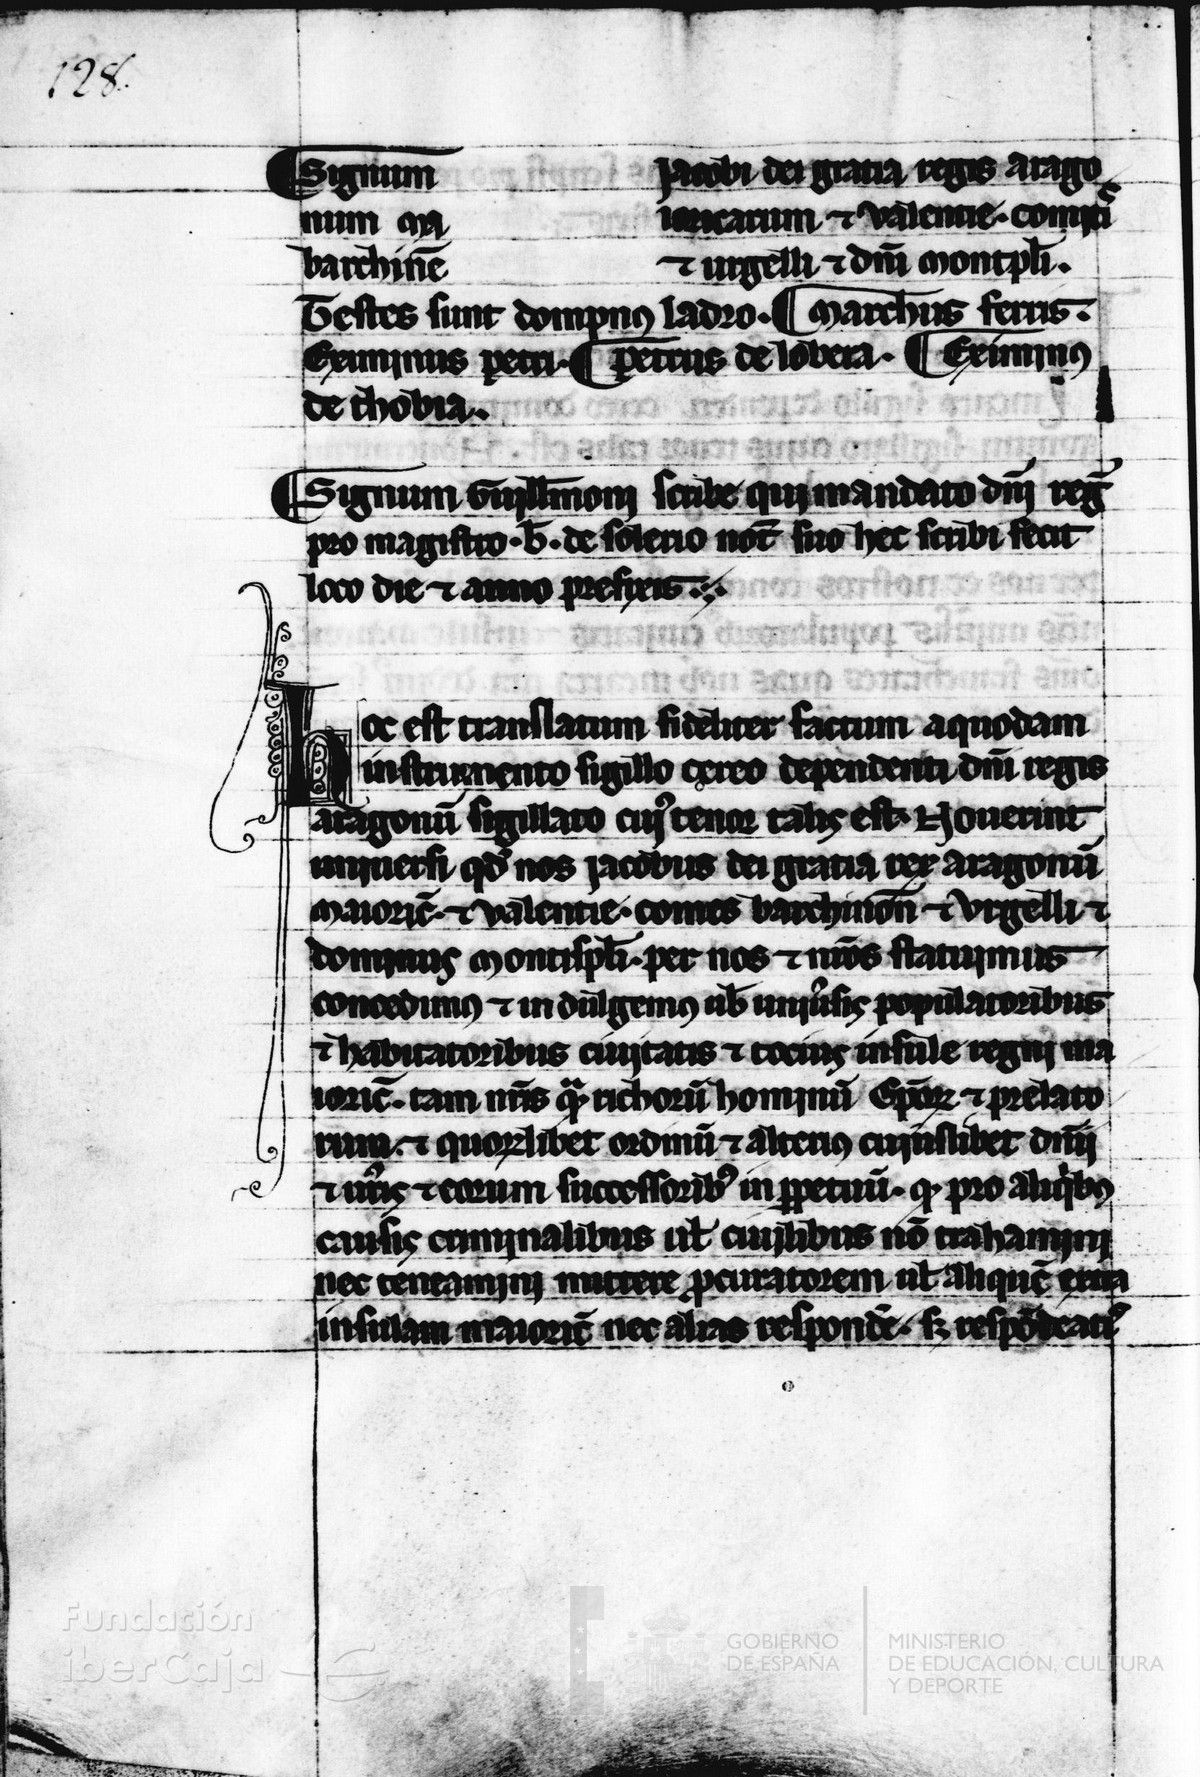 128.
Signum Jacobi dei gratia regis arago
num ma ioricarum ⁊ valentie. comitis
barchinoñ ⁊ urgelli ⁊ dñi montpłi.
Testes sunt dompnus ladro. ¶ Marchus ferris.
Eximinus petri. ¶ petrus de lobera. ¶ Eximinus
de thobia.
¶ Signum Guillmoni scribe qui mandato dñi reg̃
pro magistro .b̃. de solerio not̃ suo hec scribi fecit
loco die ⁊ anno prefixis
hoc est translatum fideliter factum a quodam
instrumento sigillo cereo dependenti dñi regis
aragonũ sigillato cuiꝰ tenor talis est. Nouerint
uniuersi qd̃ nos jacobus dei gratia rex aragonũ
Maioric̃. ⁊ valentie. comes barchinoñ ⁊ Urgelli ⁊
dominus Montispłi. per nos ⁊ nr̃os statuimus
concedimꝰ ⁊ indulgemꝰ uob̃ uniũsis populatoribus
⁊ habitatoribus ciuitatis ⁊ tocius insule regni ma
ioric̃. tam nr̃is q̃ richorũ hominũ Ep̃oꝝ ⁊ prelato
rum. ⁊ quoꝝlibet ordinũ ⁊ alteriꝰ cuiuslibet dñij
⁊ ur̃is ⁊ eorum successoribꝰ in ꝑpetuũ. ꝙ pro aliq̃bꝰ
causis criminalibus uł ciuilibus nõ trahamini
nec teneamini mittere ꝓcuratorem uł aliquẽ extra
insulam maioric̃ nec alias respondẽ. sꝫ respõdeatis
Fundación
iberCaja
GOBIERNO
DE ESPAÑA
MINISTERIO
DE EDUCACIÓN, CULTURA
Y DEPORTE